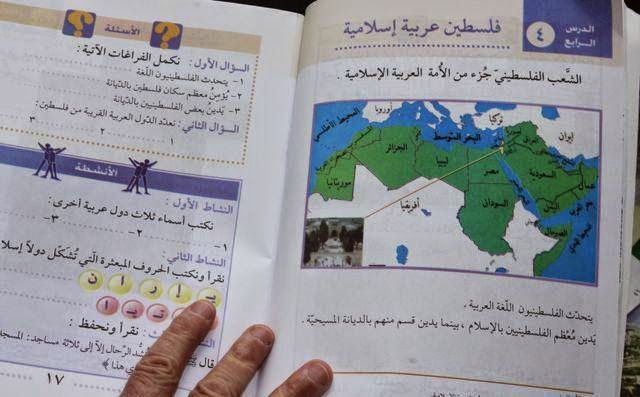 الدرس
الرابع
٤
فلسطين عربية إسلامية
الشَّعب الفلسطينيّ جُزء من الأُمة العربية الإسلامية .
المحيط الأطلسي
أوروبا
تركيا
البحر المتوسط
سوريا
العراق
إيران
الجزائر
ليبيا
مصر
السعودية
موريتانيا
السودان
اليمن
عُمان
الصومال
أفريقيا
يتحدّث الفلسطينيون اللّغة العربية .
يَدين مُعْظم الفلسطينيين بالإسلام ، بينما يدين قسم منهم بالديانة المسيحيّة .
الأسئلة
السؤال الأول : نكمل الفراغات الآتية :
١- يتحدث الفلسطينيون اللّغة
٢- يُؤمن معظم سكان فلسطين بالدّيانة
٣- يَدينُ بعض الفلسطينيين بالدّيانة
السؤال الثاني : نعدّد الدّول العربية القريبة من فلسطين :
١
٢
٣
الأنشطة
النشاط الأول :
نكتب أسماء ثلاث دول عربية أخرى :
١-
٢-
٣-
النشاط الثاني :
نقرأ ونكتب الحروف المبعثرة الّتي تُشكّل دولاً إسلا
ا ر د ا ن
نقرأ ونحفظ :
الرِّحال إلاّ إلى ثلاثة مساجد : المسجد
١٧